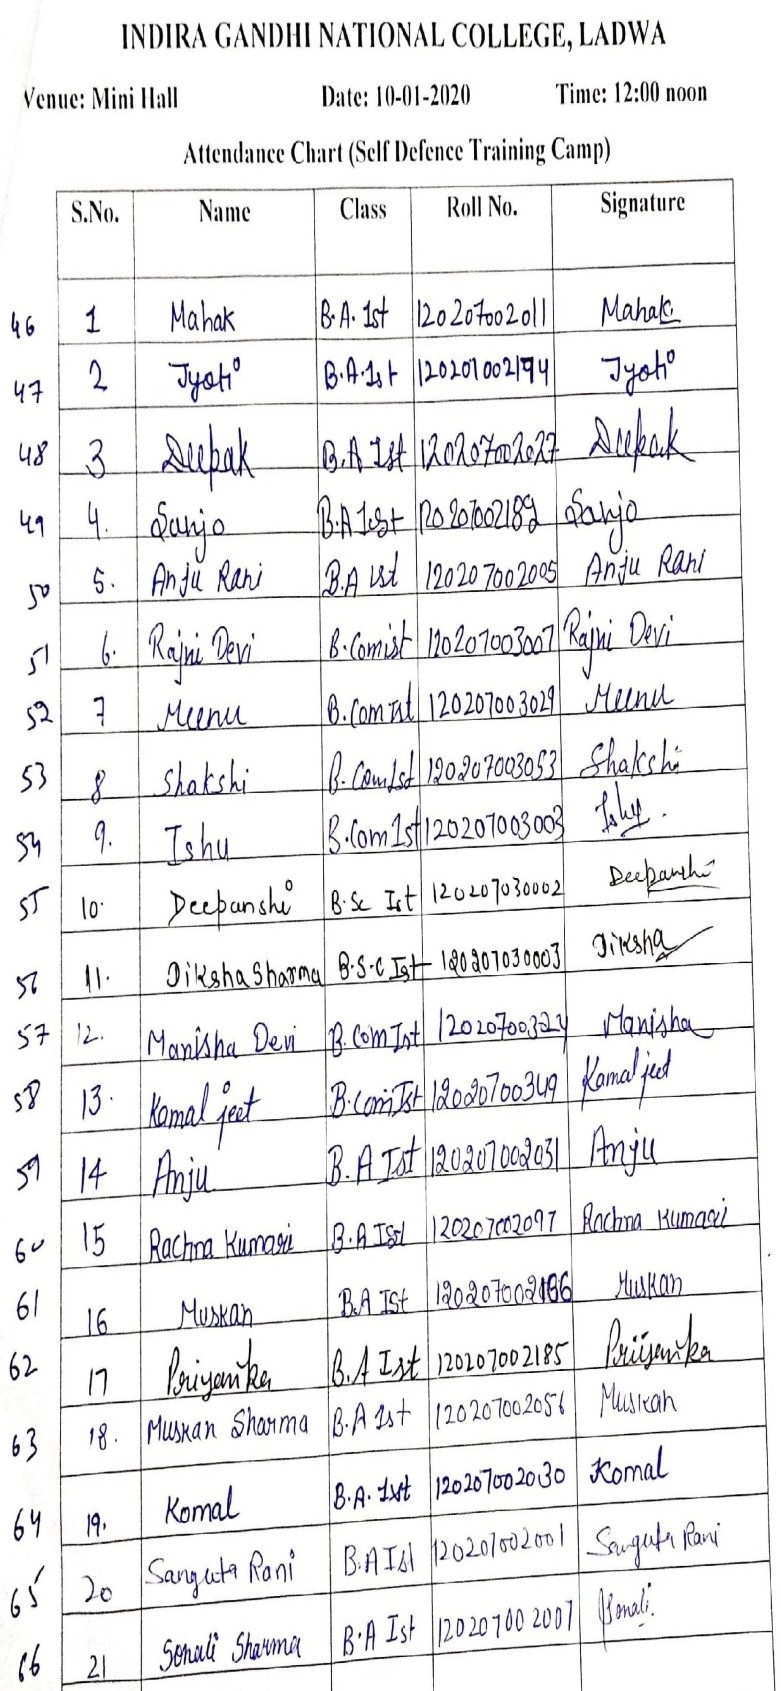 INDIRA GANDHI NATIONAL COLLEGE, LADWA
Venue: Mini Hall Date: 10-01-2020 Time: 12:00 noon
Attendance Chart (Self Defence Training Camp)
S.No. Name Class Roll No. Signature
46 1 Mahak B.A. 1st 120207002011 Mahak
47 2 Jyoti B.A.1st 120207002194 Jyoti
48 3 Deepak B.A Ist 120207002027 Deepak
49 4. Sanjo B.A Ist 120207002189 Sanjo
50 5. Anju Rani B.A Ist 120207002005 Anju Rani
51 6. Rajni Devi B.Com ist 120207003007 Rajni Devi
52 7 Meenu B.Com Ist 120207003029 Meenu
53 8 Shakshi B.Com Ist 120207003053 Shakshi
54 9. Ishu B.Com 1st 120207003003 Ishu.
55 10. Deepanshi B.Sc Ist 120207030002 Deepanshi
56 11. Diksha Sharma B.S.C Ist 120207030003 Diksha
57 12. Manisha Devi B.Com Ist 12020700324 Manisha
58 13. Kamal jeet B.com Ist 12020700349 Kamal jeet
59 14 Anju B.A Ist 120207002031 Anju
60 15 Rachna Kumari B.A Ist 120207002097 Rachna Kumari
61 16 Muskan B.A Ist Muskan
62 17 Priyanka B.A Ist 120207002185 Priyanka
63 18. Muskan Sharma B.A 1st 120207002056 Muskan
64 19. Komal B.A. 1st 120207002030 Komal
65 20 Sangeeta Rani B.A Ist 120207002001 Sangeeta Rani
66 21 Sonali Sharma B.A Ist 120207002007 Sonali.